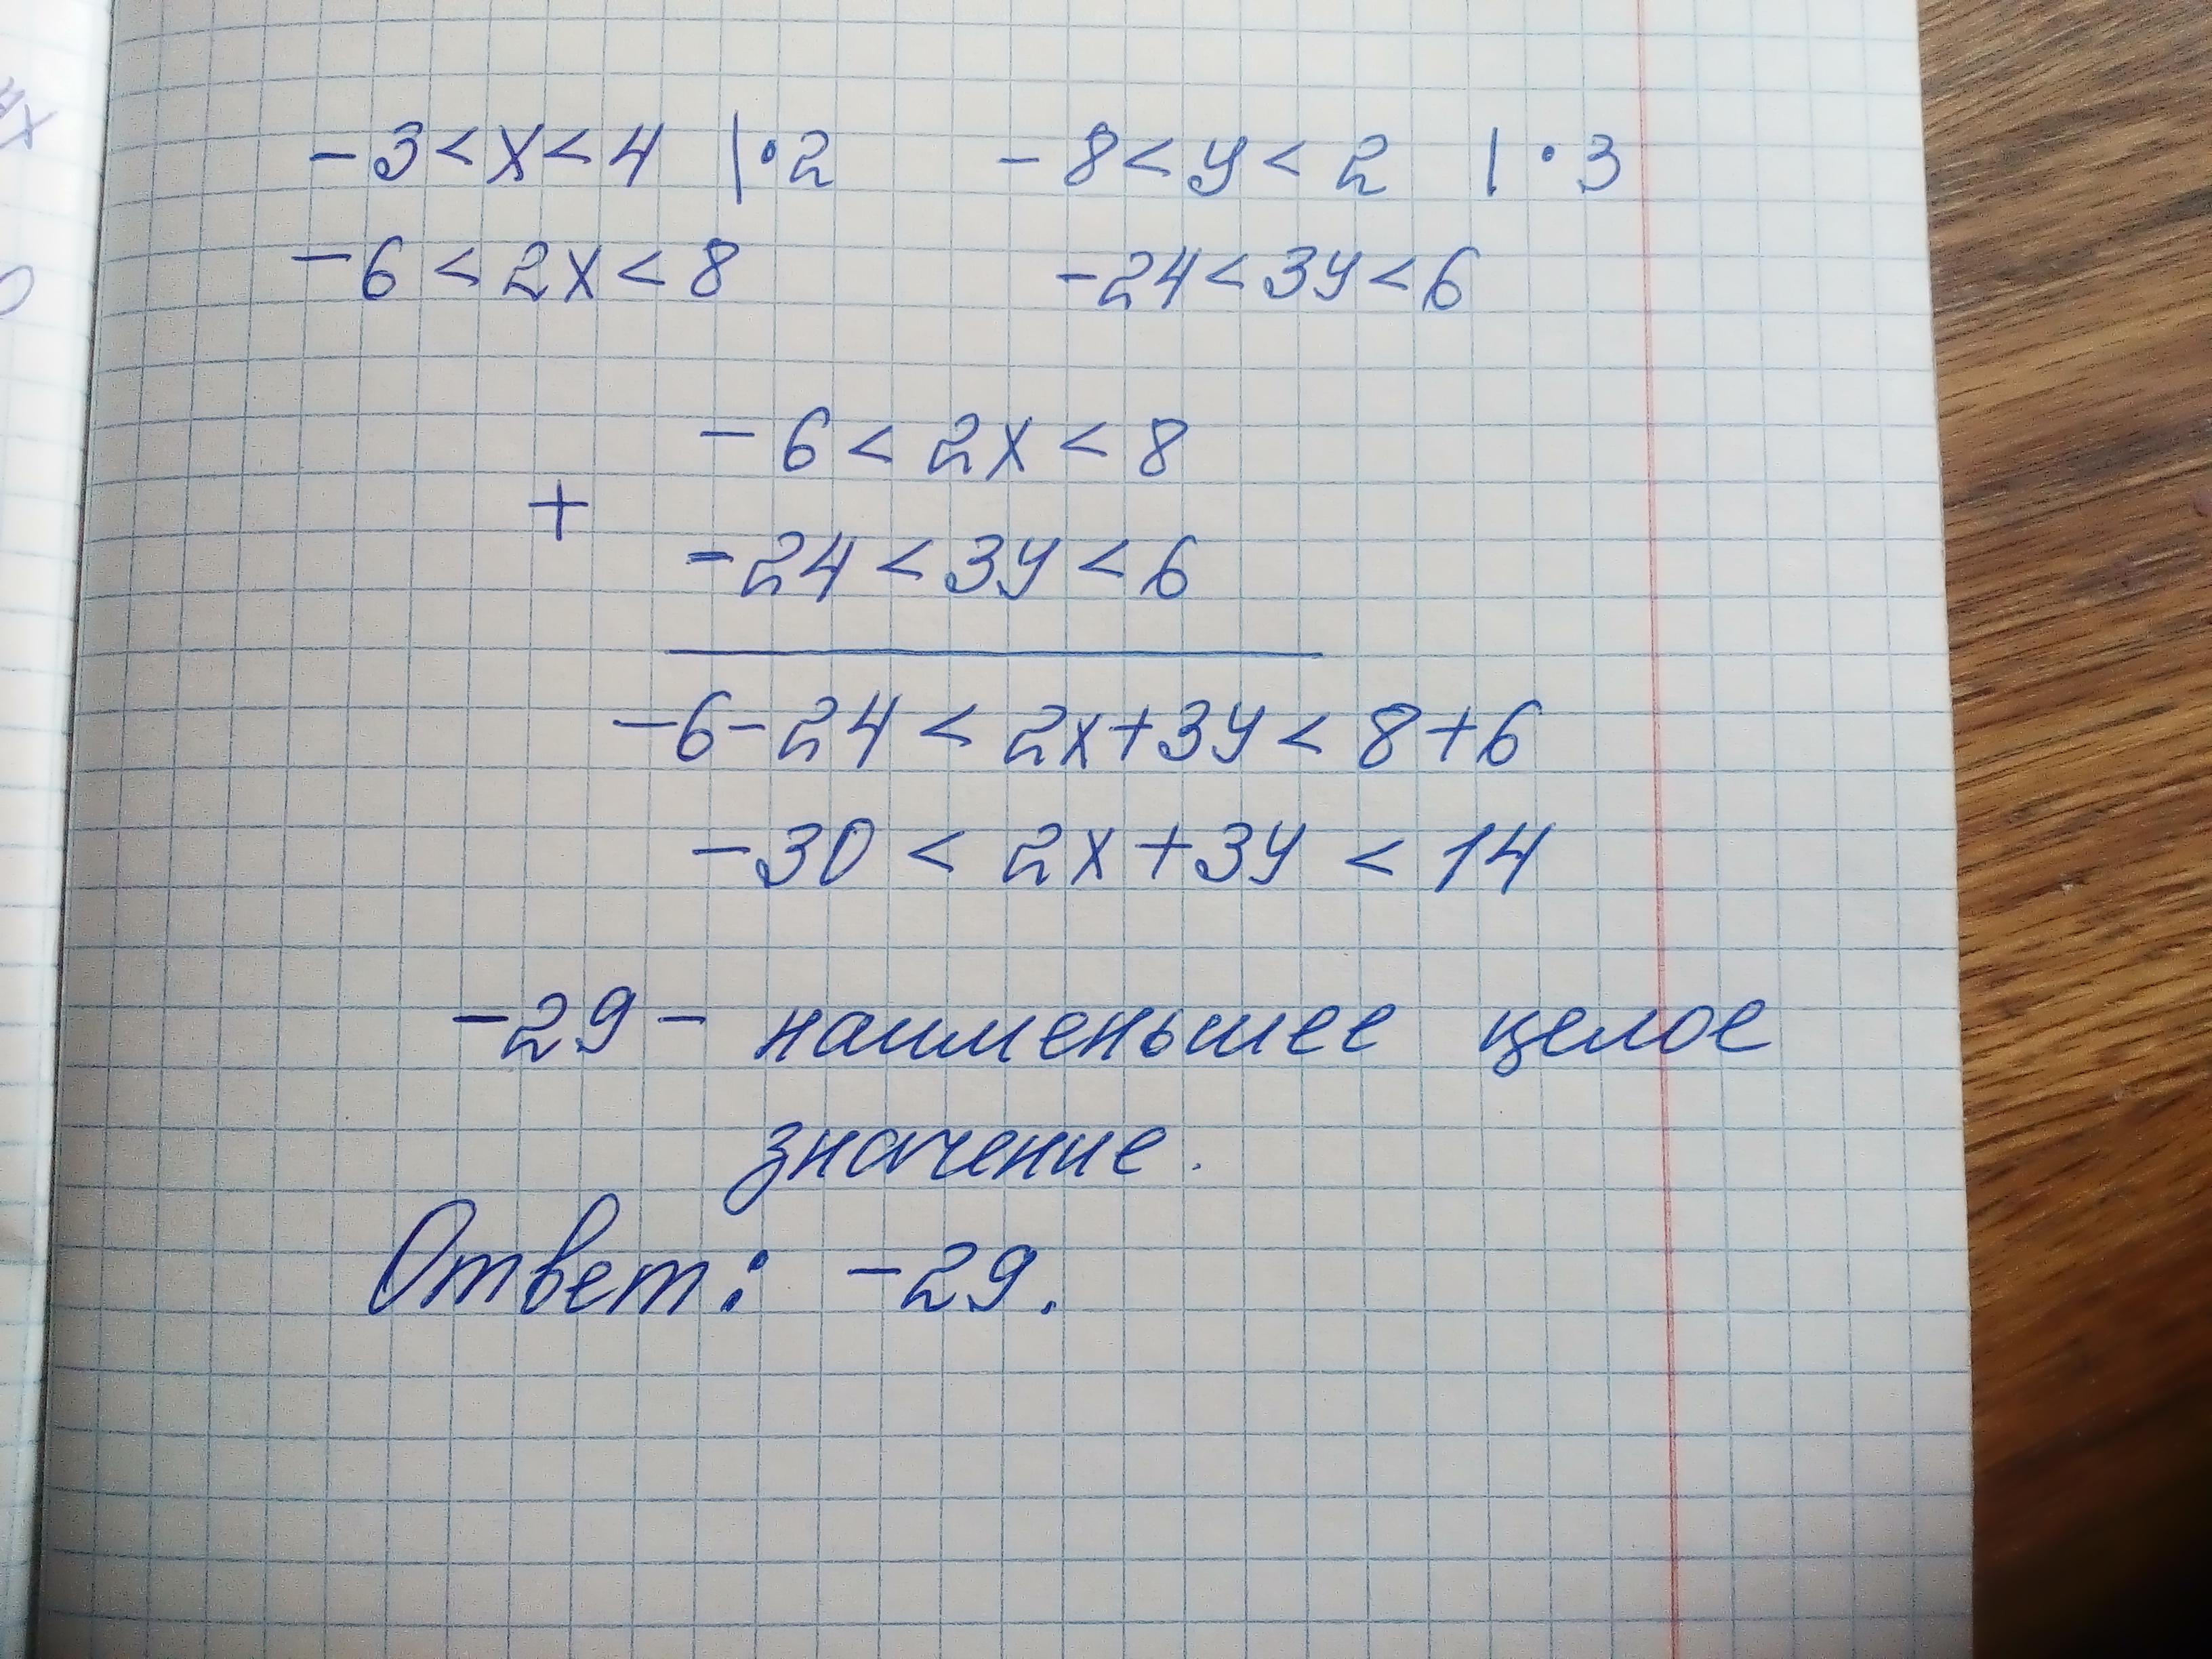 -3<x<4 |·2 -8<y<2 |·3
-6<2x<8 -24<3y<6
-6<2x<8
+
-24<3y<6
-6-24<2x+3y<8+6
-30<2x+3y<14
-29 - наименьшее целое
значение.
Ответ: -29.